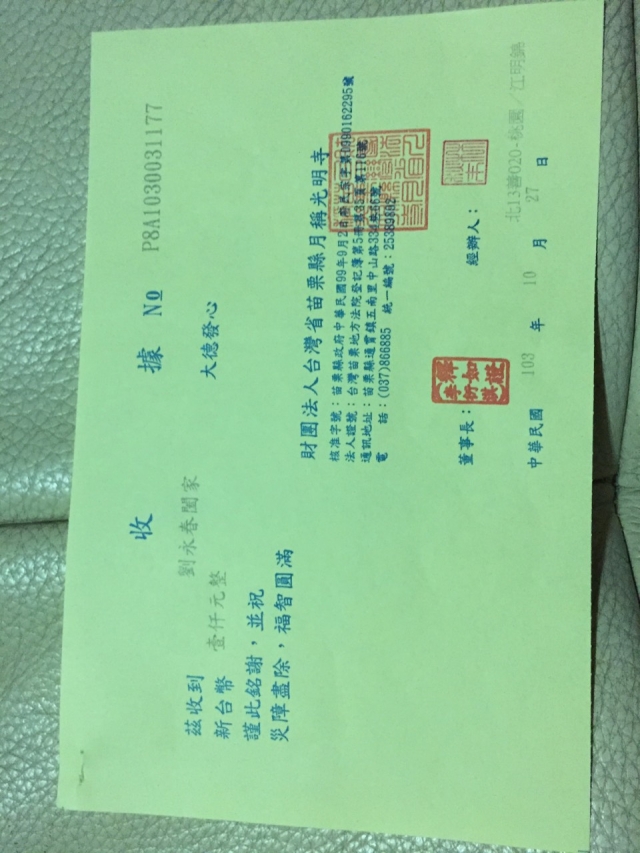 收 據 No P8A1030031177
茲收到 劉永春閤家 大德發心
新台幣 壹仟元整
謹此銘謝，並祝
災障盡除，福智圓滿
財團法人台灣省苗栗縣月稱光明寺
核准字號：苗栗縣政府中華民國99年9月2
0990162295號
法人證號：台灣苗栗地方法院登記簿第5冊
通訊地址：苗栗縣通霄鎮五南里中山路
統一編號：25389802
電 話：(037)866885
董事長： 經辦人：
中華民國 103 年 10 月 27 日